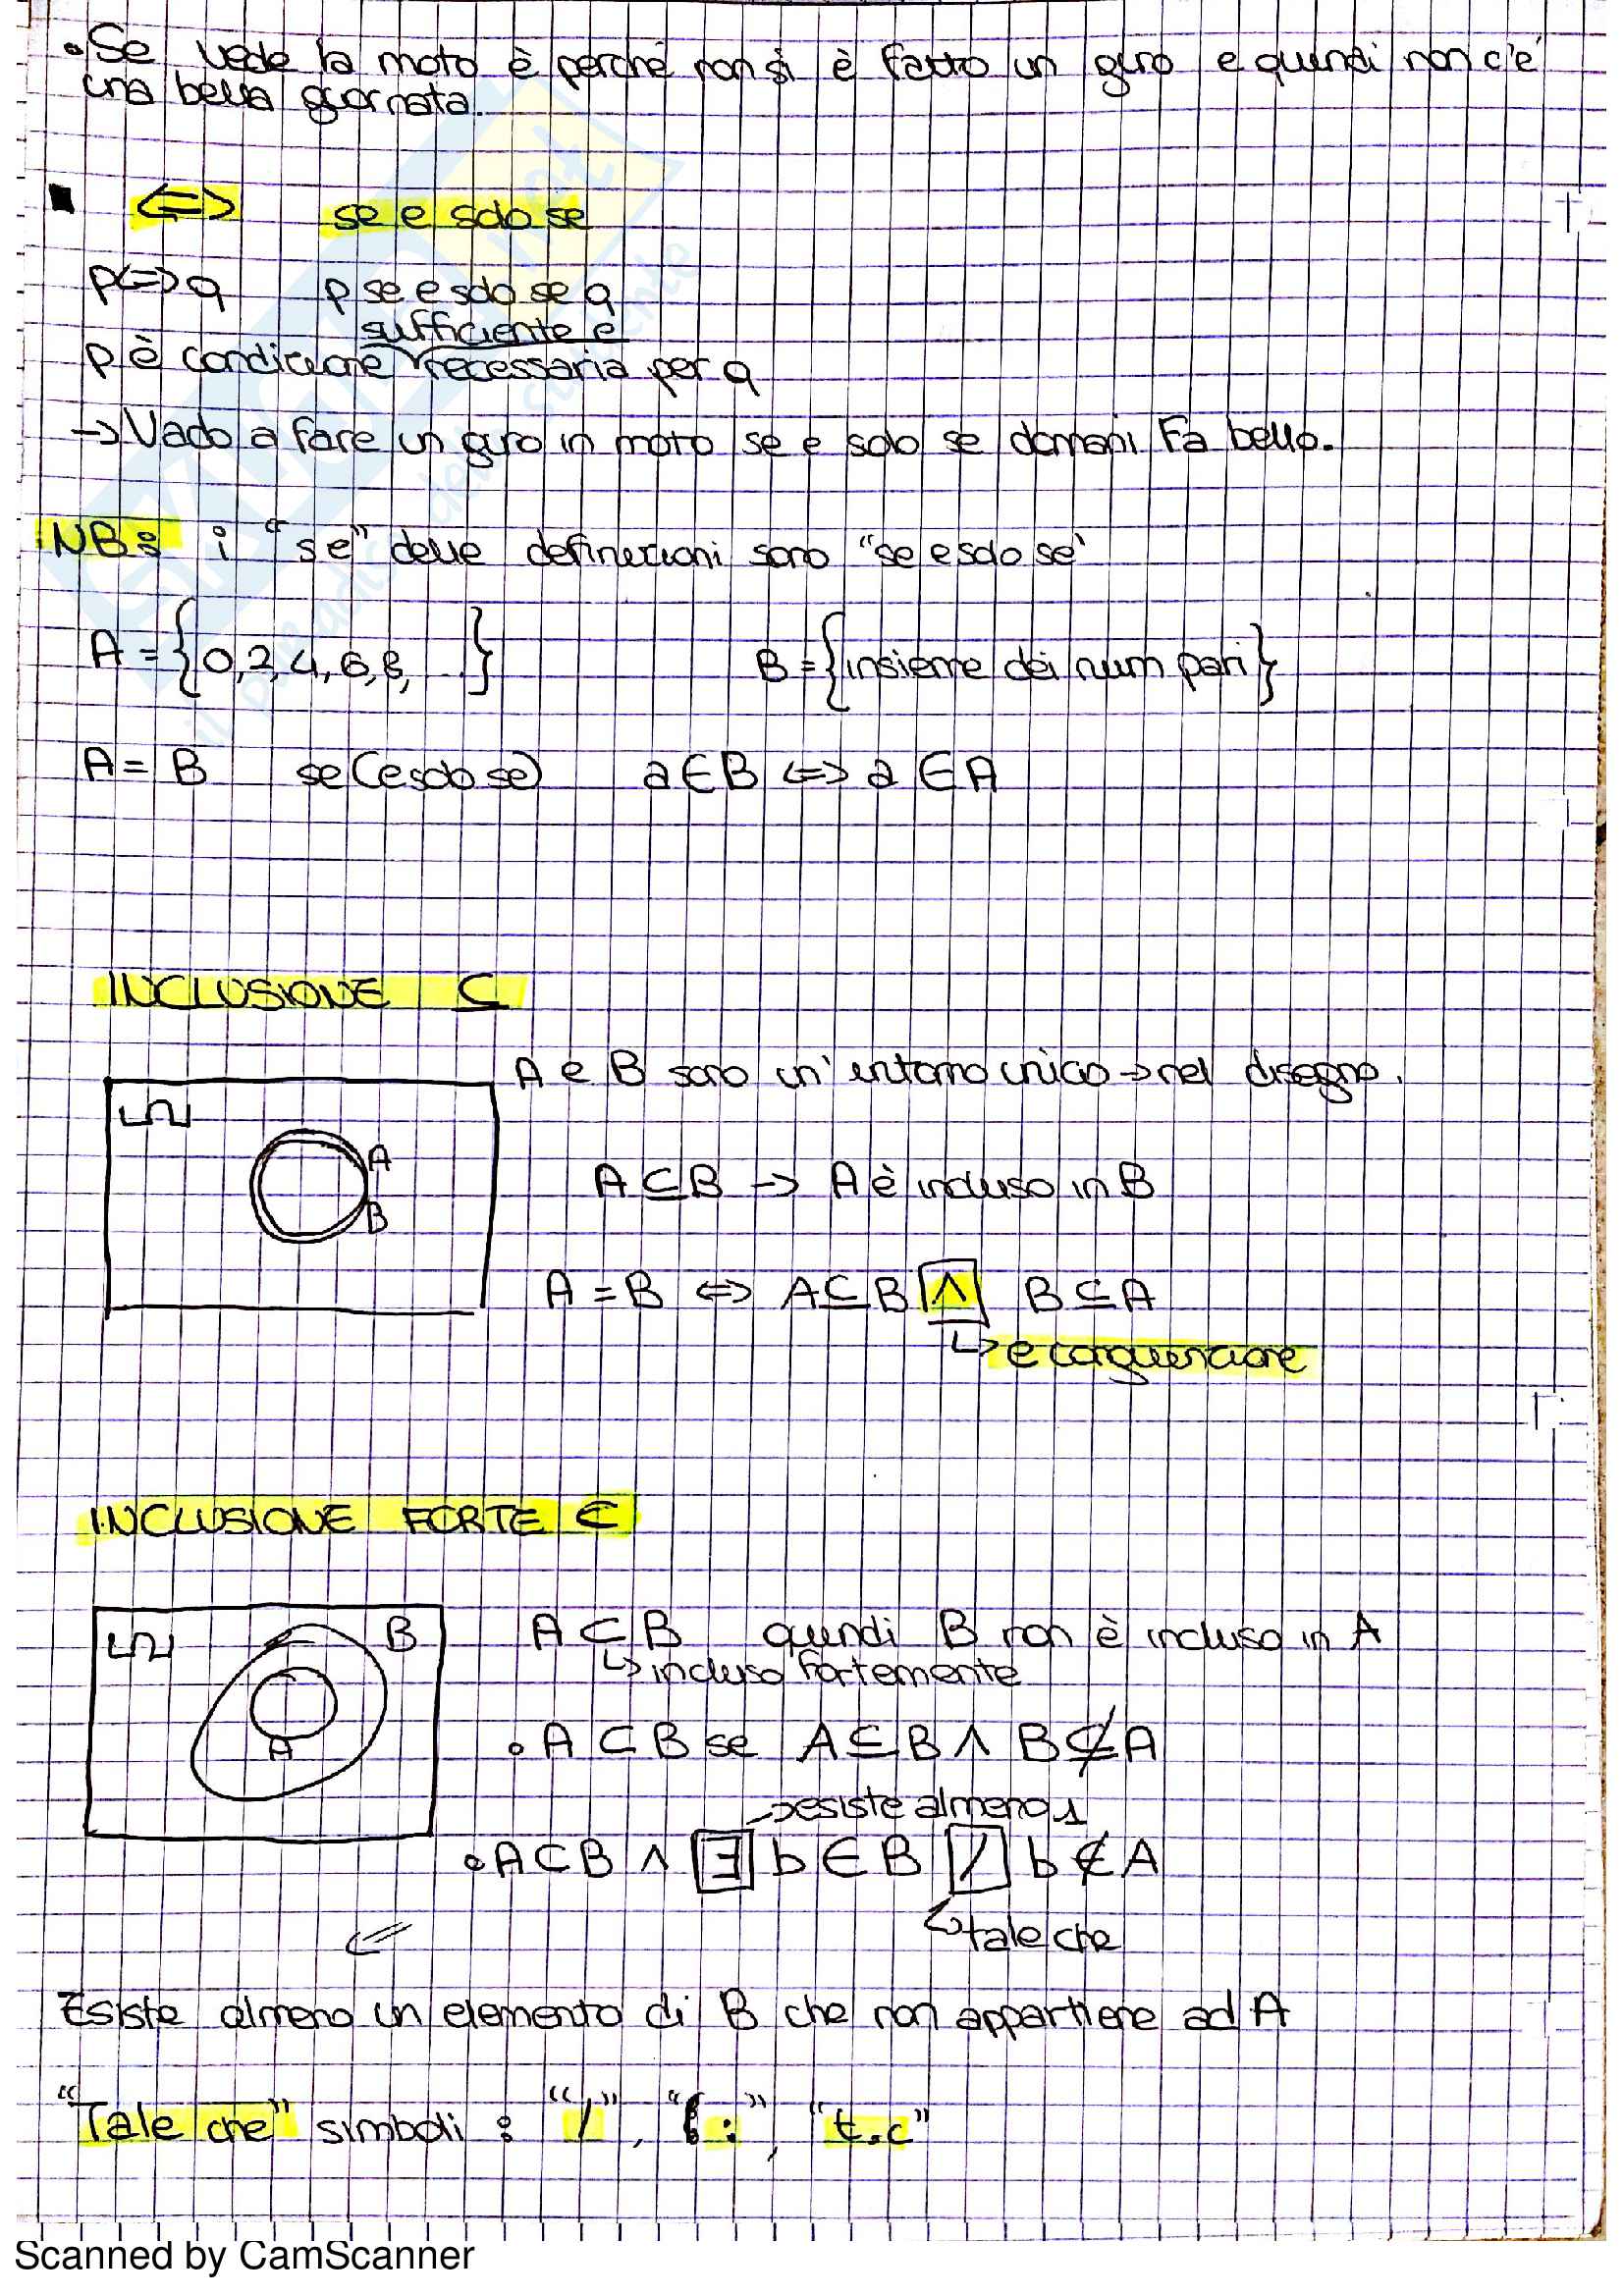 • Se vede la moto è perché non si è fatto un giro e quindi non c'è
una bella giornata.
⇔ se e solo se
p⇔q p se e solo se q
sufficiente e
p è condizione necessaria per q
→ Vado a fare un giro in moto se e solo se domani fa bello.
NB: i "se" delle definizioni sono "se e solo se"
A = {0,2,4,6,8, ...} B = {insieme dei num pari}
A = B se (e solo se) a∈B ⇔ a∈A
INCLUSIONE ⊆
A e B sono un' intorno unico → nel disegno.
Ω
A
B
A⊆B → A è incluso in B
A = B ⇔ A⊆B ∧ B⊆A
↳ e congiunzione
INCLUSIONE FORTE ⊂
Ω B
A
A⊂B quindi B non è incluso in A
↳ incluso fortemente
• A⊂B se A⊆B ∧ B⊈A
→ esiste almeno 1
• A⊂B ∧ ∃ b∈B / b∉A
↳ tale che
⇐
Esiste almeno un elemento di B che non appartiene ad A
"Tale che" simboli : "/", ":", "t.c"
Scanned by CamScanner